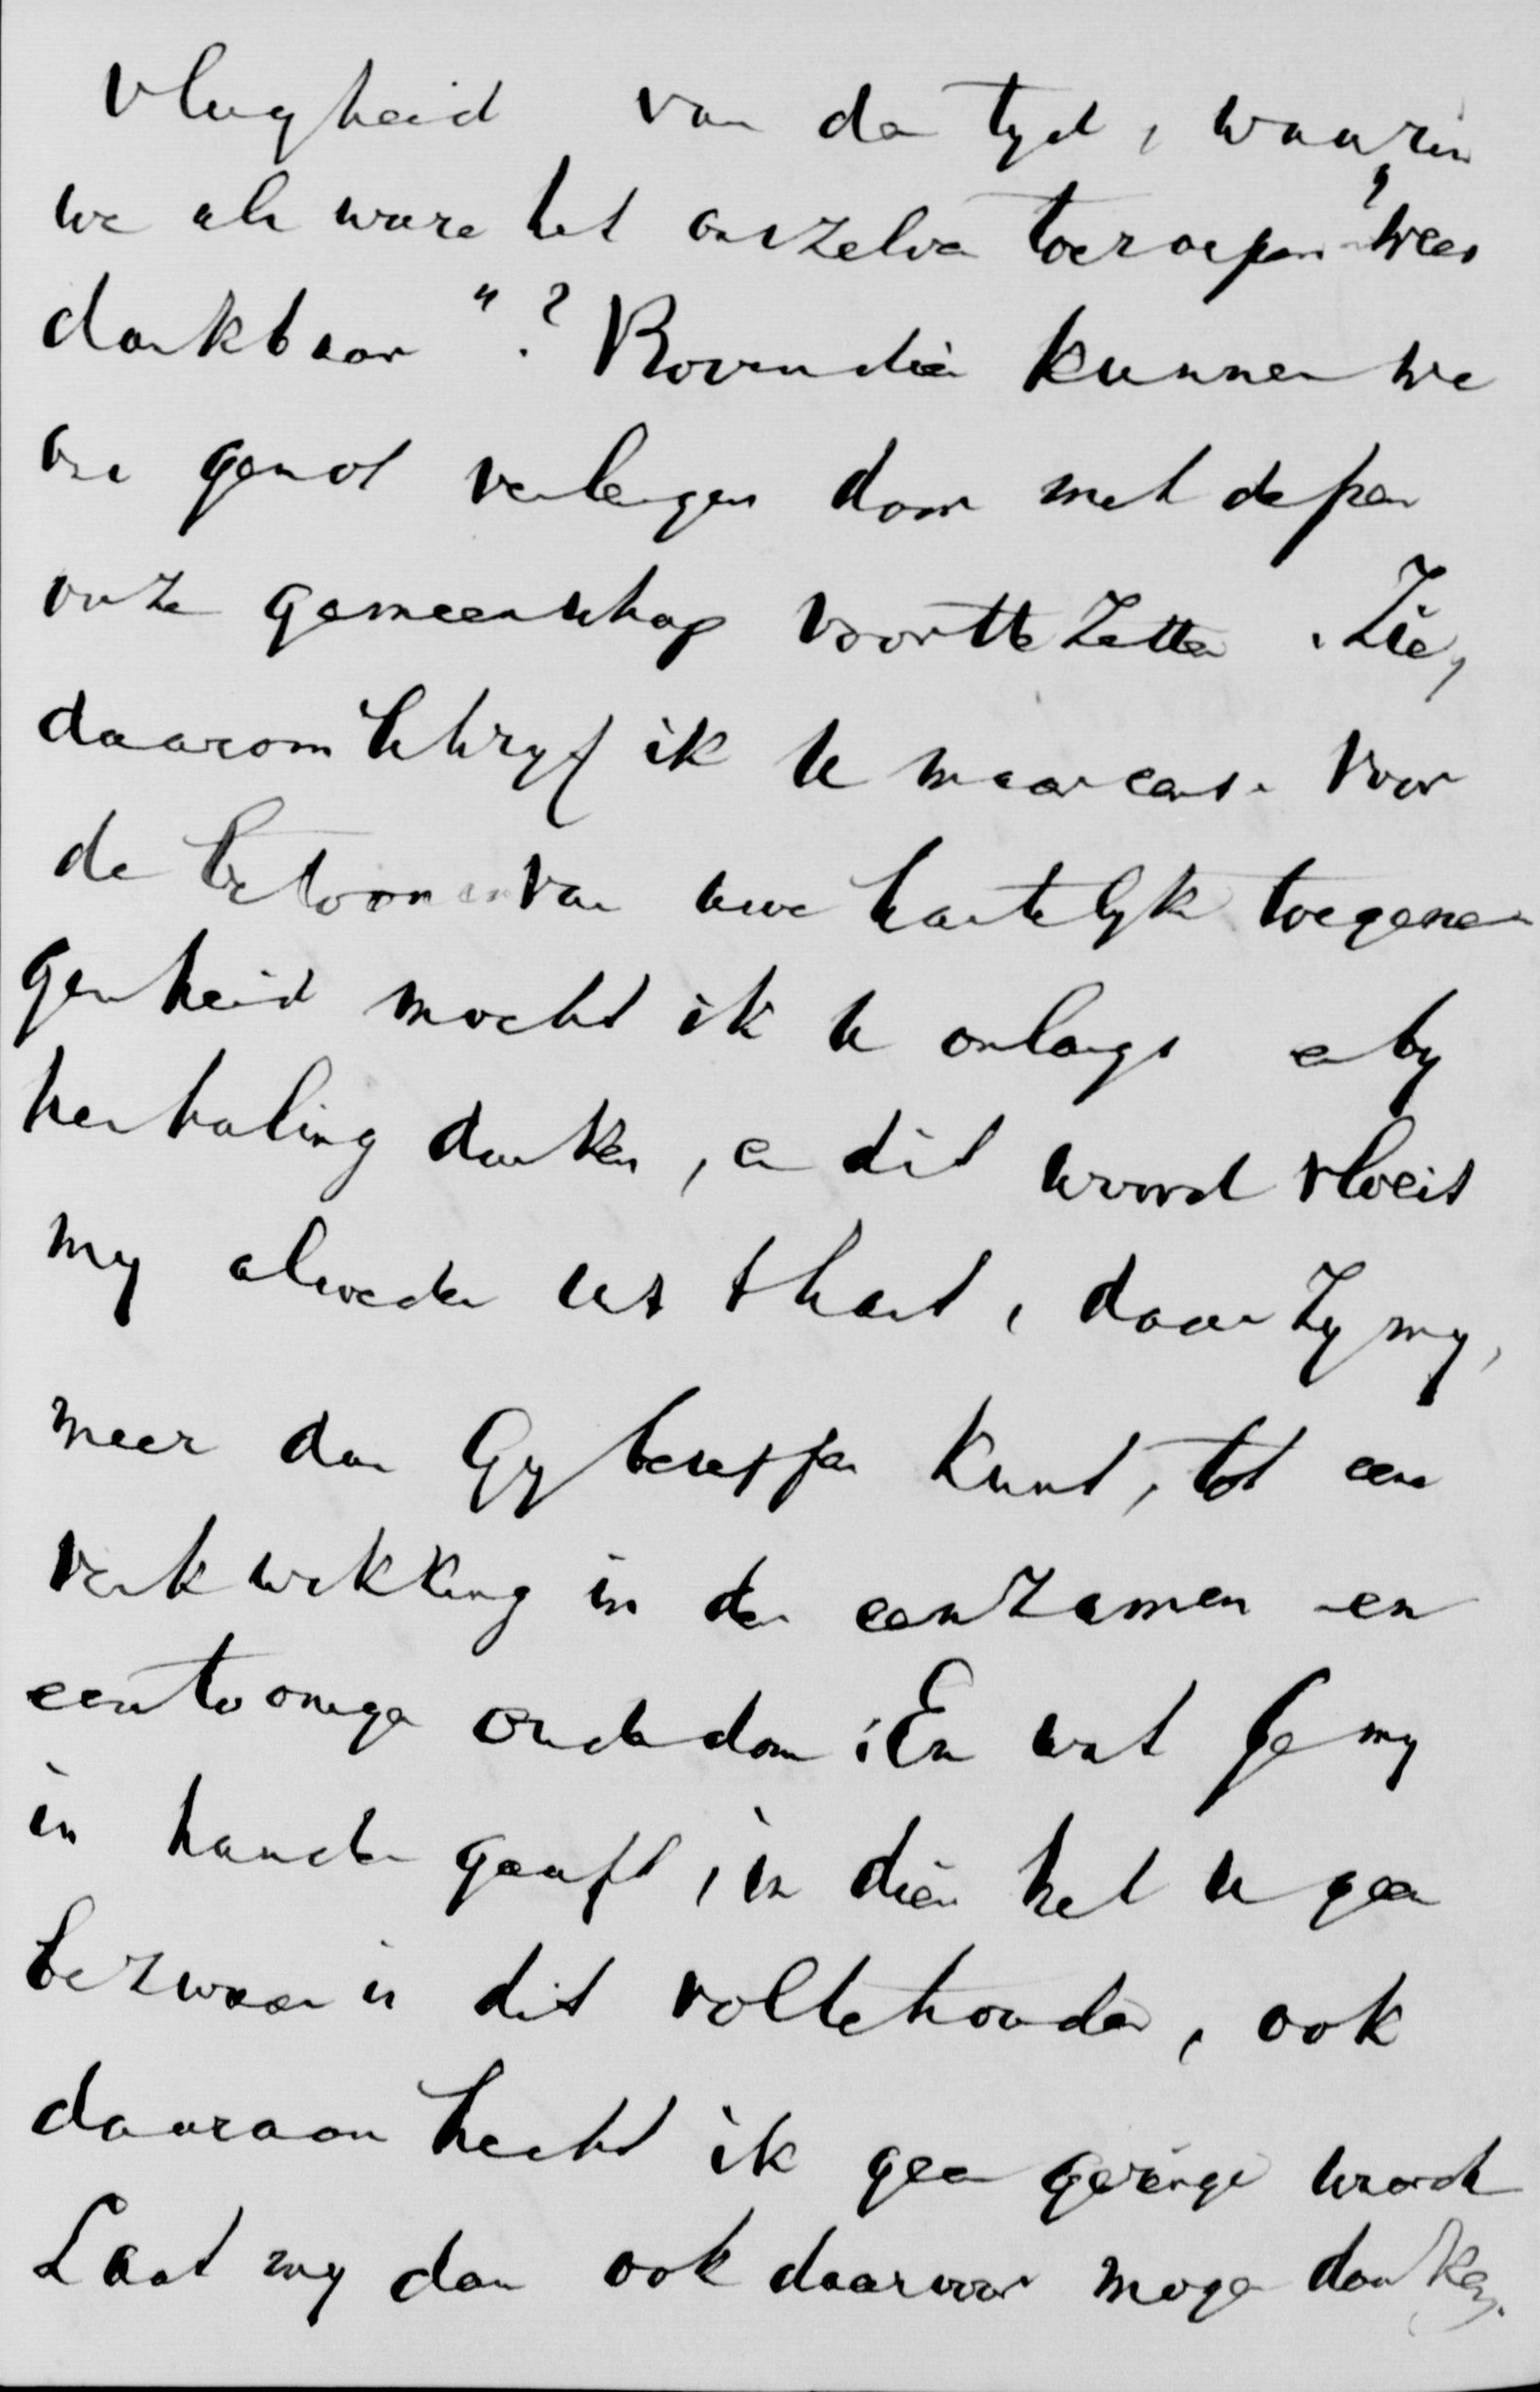 vlugheid van den tyd, waarin
we als ware het onszelven toeroepen "wees
dankbaar"? Bovendien kunnen we
ons genot verlengen door met de pen
onze gemeenschap voort te zetten. Zie,
daarom schryf ik U maar eens. Voor
de betoonen van uwe hartelyke toegene-
genheid mocht ik U onlangs en by
herhaling danken, en dit woord vloeit
my alweder uit 't hart, daar zy my,
meer dan Gy beseffen kunt, tot een
verkwikking in den eenzamen en
eentoonigen ouderdom. En wat Ge my
in handen gaaft, indien het U geen
bezwaar is dit vol te houden, ook
daaraan hecht ik geen geringe waarde
Laat my dan ook daarvoor mogen danken.